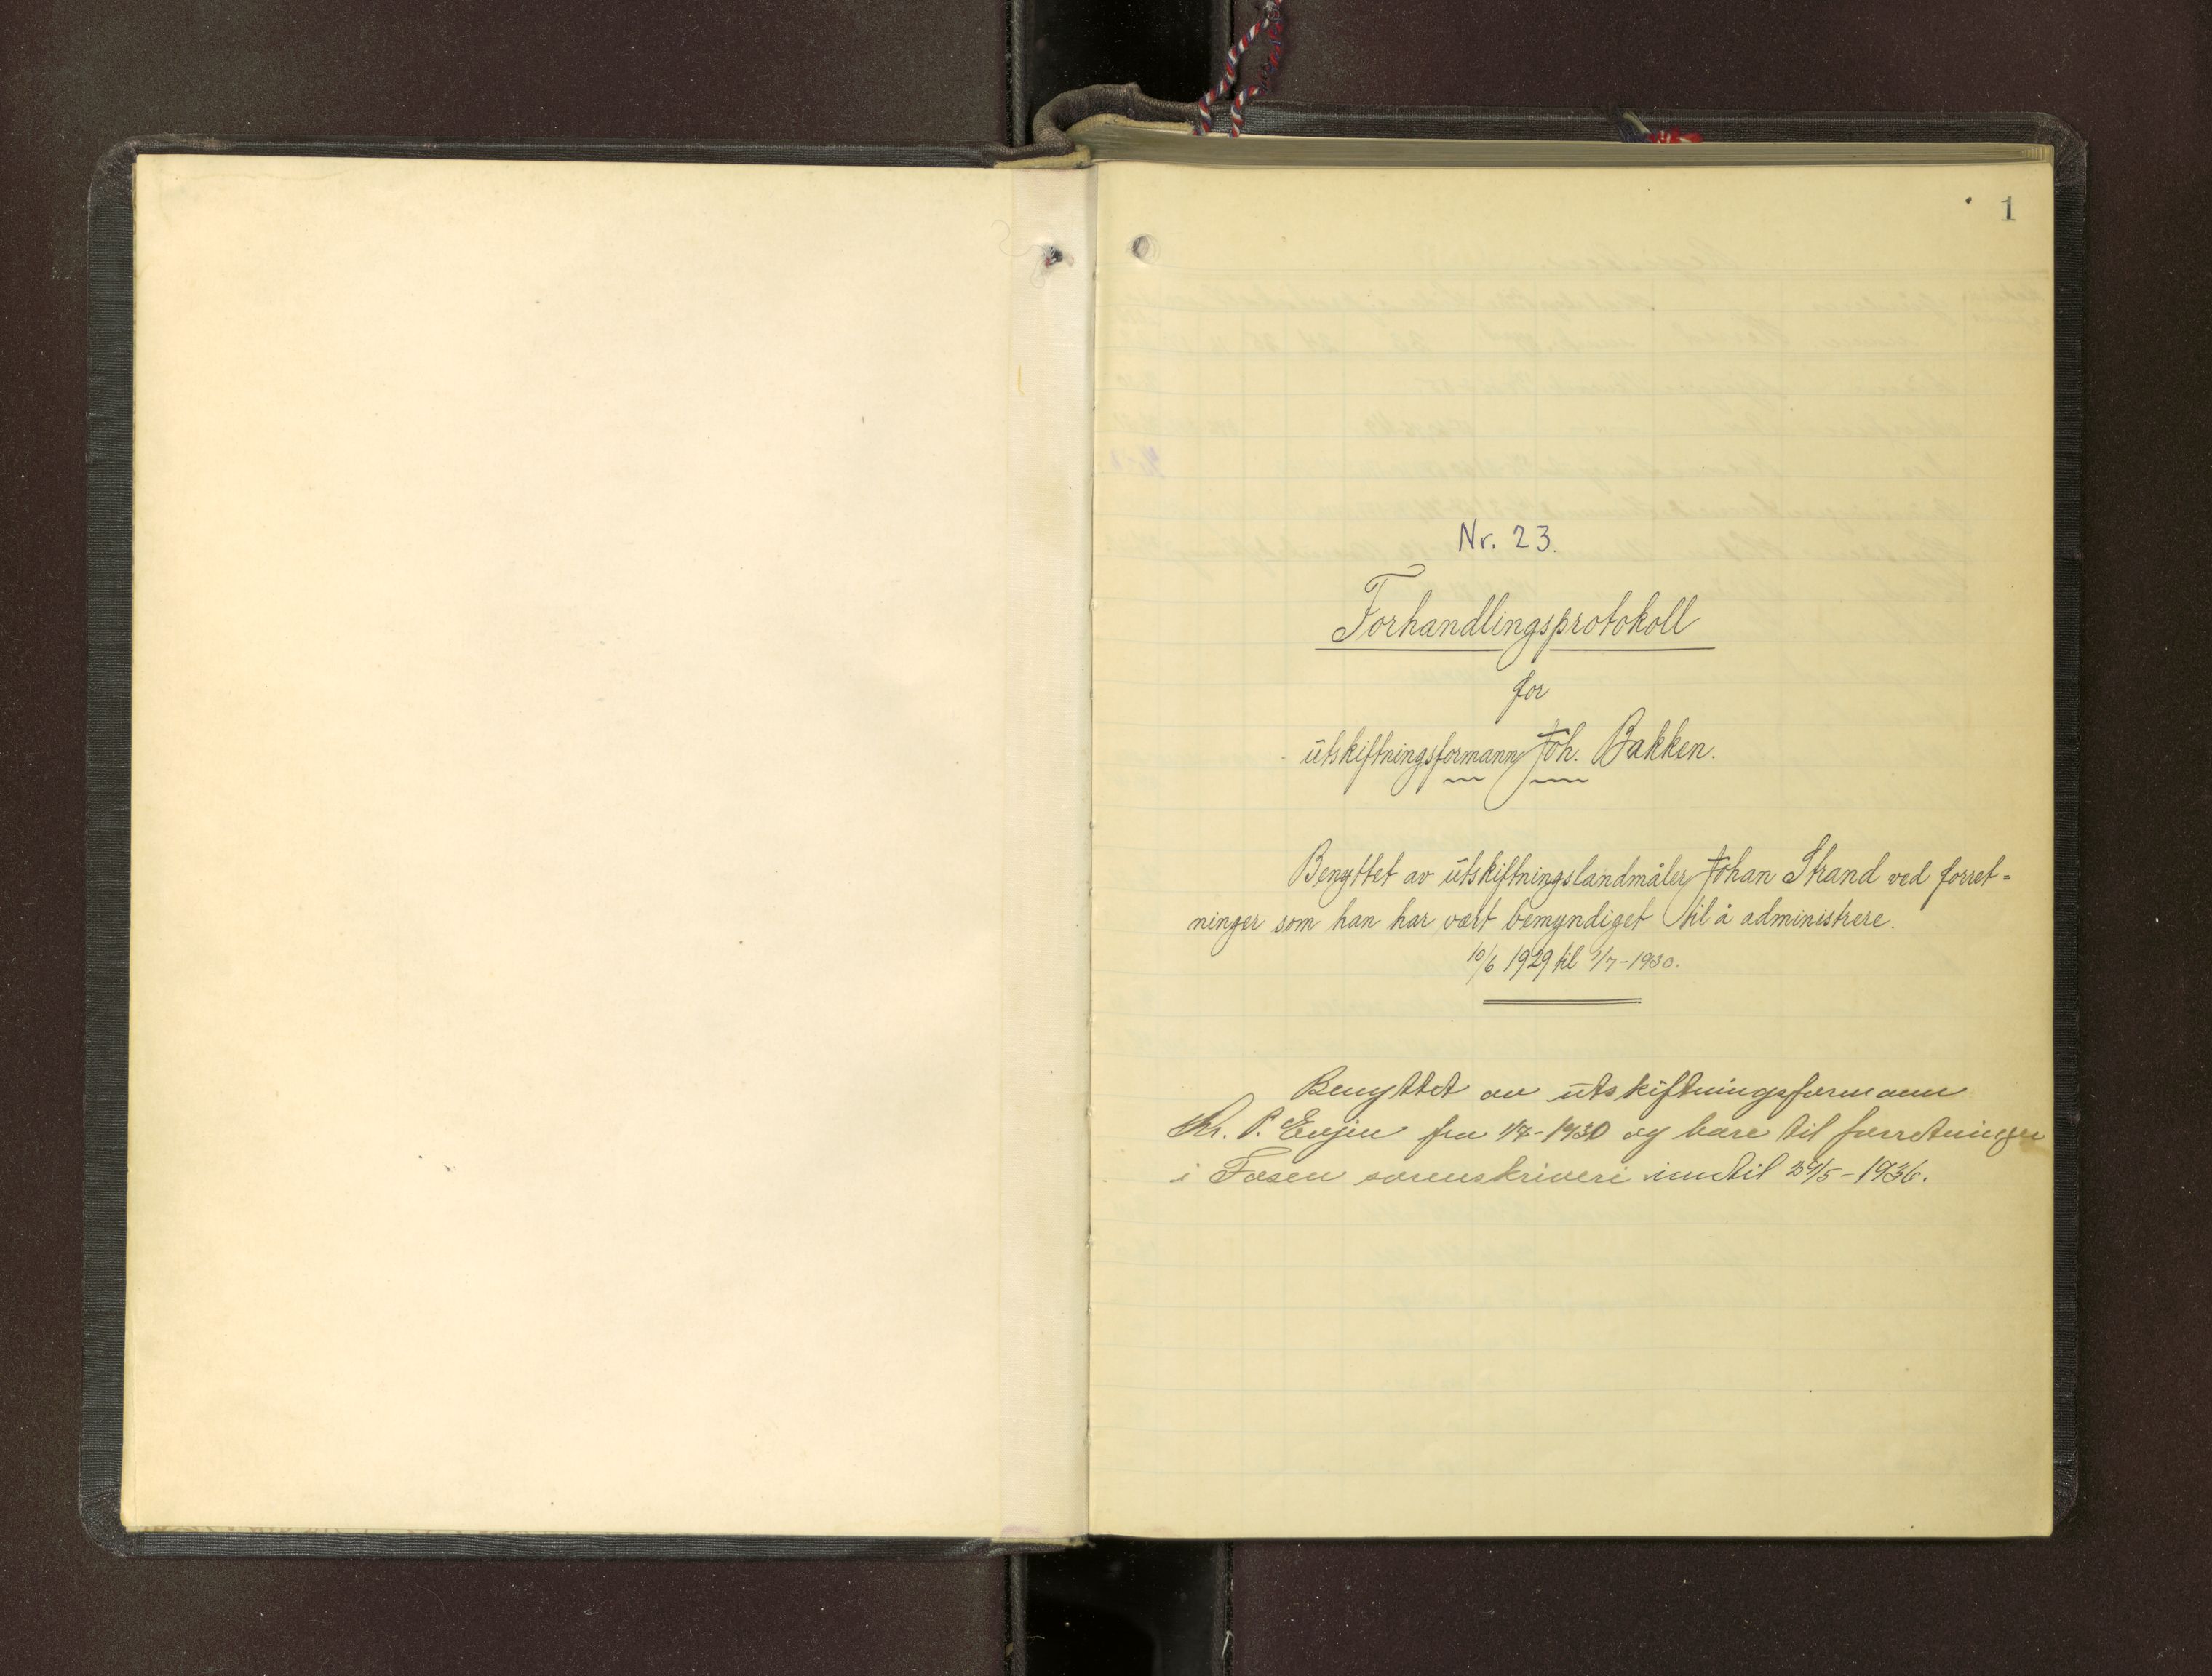 1
Nr. 23.
Forhandlingsprotokoll
for
utskiftningsformann Joh. Bakken.
Benyttet av utskiftningslandmåler Johan Strand ved forret=
ninger som han har vært bemyndiget til å administrere.
10/6 1929 til 1/7-1930.
Benyttet av utskiftningsformann
Kr. P. Evjen fra 1/7-1930 og bare til forretninger
i Fosen sorenskriveri inntil 29/5-1936.